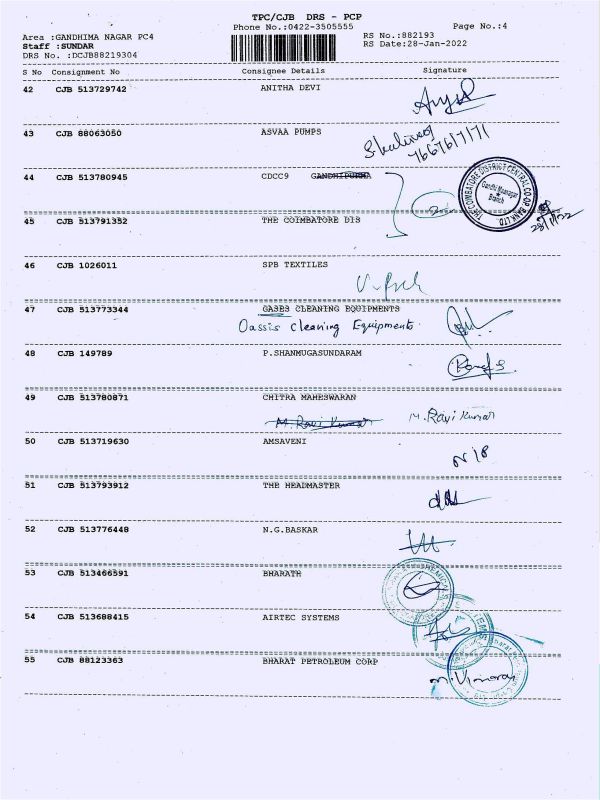 TPC/CJB DRS - PCP
Phone No.:0422-3505555 Page No.:4
Area :GANDHIMA NAGAR PC4 RS No.:882193
Staff :SUNDAR RS Date:28-Jan-2022
DRS No. :DCJB88219304
S No Consignment No Consignee Details Signature
42 CJB 513729742 ANITHA DEVI
43 CJB 88063050 ASVAA PUMPS
7667617171
44 CJB 513780945 CDCC9 GANDHIPURMA
THE COIMBATORE DISTRICT CENTRAL CO-OP BANK LTD.
Gandhi Maanagar
Branch
45 CJB 513791352 THE COIMBATORE DIS
46 CJB 1026011 SPB TEXTILES
47 CJB 513773344 GASES CLEANING EQUIPMENTS
Oassis Cleaning Equipments
48 CJB 149789 P.SHANMUGASUNDARAM
49 CJB 513780871 CHITRA MAHESWARAN
M.Ravi Kumar M.Ravi Kumar
50 CJB 513719630 AMSAVENI
51 CJB 513793912 THE HEADMASTER
52 CJB 513776448 N.G.BASKAR
53 CJB 513466591 BHARATH
54 CJB 513688415 AIRTEC SYSTEMS
55 CJB 88123363 BHARAT PETROLEUM CORP